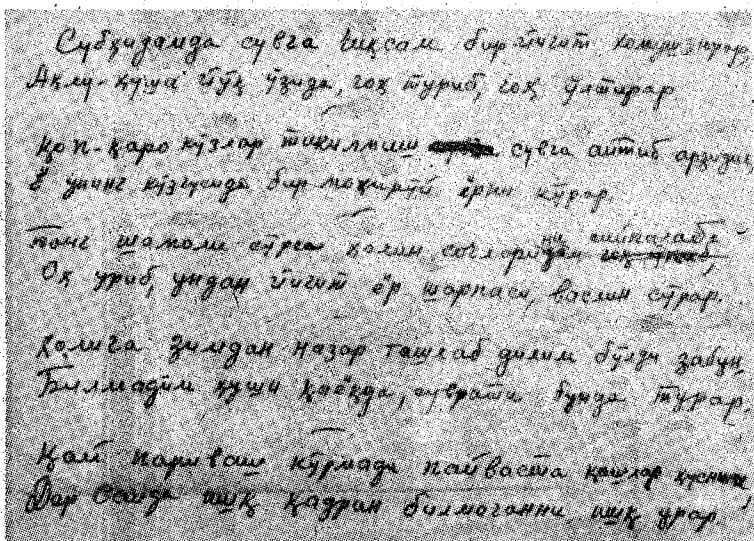 Субҳидамда сувга чиқсам бир йигит
Ақлу-ҳуши йўқ ўзида, гоҳ туриб, гоҳ ўлтирар
Қоп-қаро кўзлар тикилмиш сувга айтиб арзидил,
Ё унинг кўзгусида бир моҳирўй ёрни кўрар.
Тонг шамоли сўрса қалин сочларини силкалаб
Оҳ уриб, ундан йигит ёр шарпаси, васлин сўрар.
Ҳолига зимдан назар ташлаб дилим бўлди забун,
Билмадим ҳуши қаёқда, суврати бунда турар.
Қай париваш кўрмади пайваста қошлар ҳуснини,
Ҳар ишқ қадрин билмаганни ишқ урар.